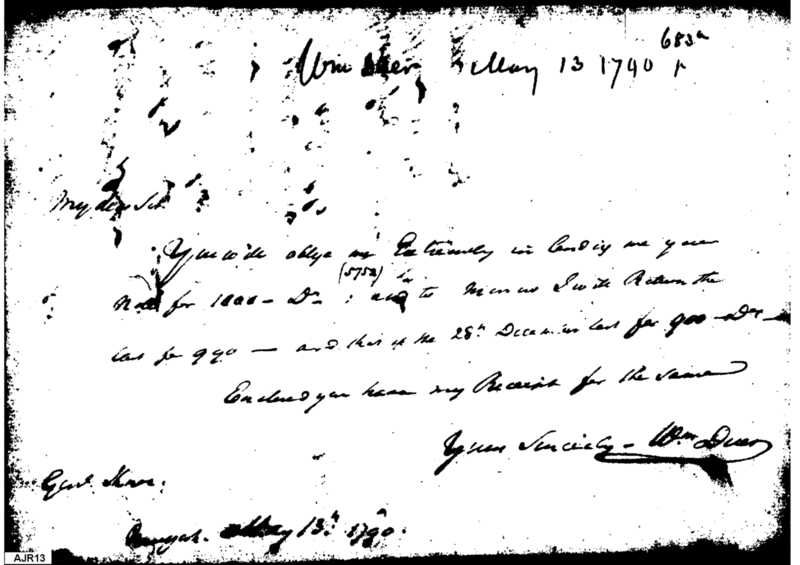 683a
Wm Duer May 13 1790
My dear Sir
You will oblige me Extremely in lending me your
(5752)
Note for 1000 - Drs : and to Morrow I will Return the
last for 990 — and that of the 28th December last for 900 - Drs -
Enclosed you have my Receipt for the same
Yours Sincerely - Wm Duer
Genl Knox.
May 13th 1790.
AJR13